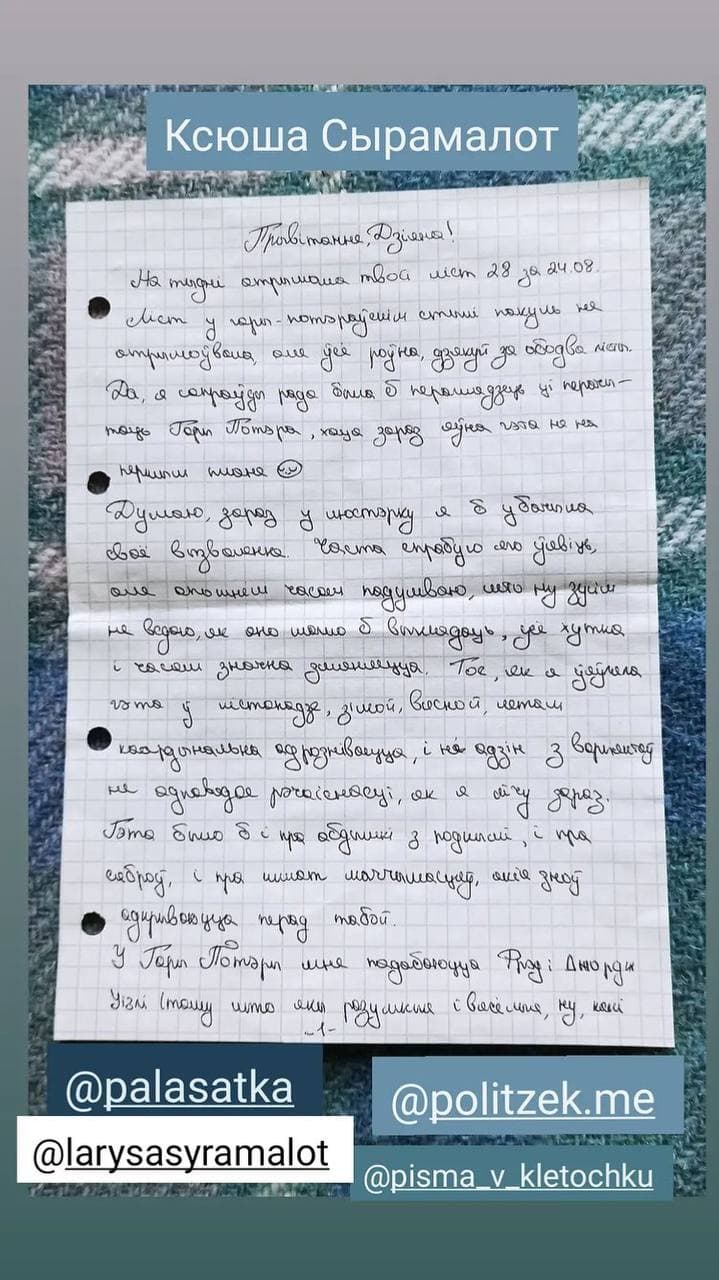 Ксюша Сырамалот
Прывітанне, Дзіяна!
На тыдні атрымала твой ліст 28 за 24.08.
Ліст у гары-потэраўскім стылі пакуль не
атрымоўвала, але ўсё роўна, дзякуй за абодва лісты.
Да, я сапраўды рада была б пераглядзець ці перачы-
таць Гары Потэра, хаця зараз яўна гэта не на
першым плане
Думаю, зараз у люстэрку я б убачыла
сваё вызваленне. Часта спрабую яго ўявіць,
але апошнім часам падумваю, што ну зусім
не ведаю, як яно магло б выглядаць, усё хутка
і часам значна змяняецца. Тое, як я ўяўляла
гэта ў лістападзе, зімой, вясной, летам
каардынальна адрозніваецца, і не адзін з варыянтаў
не адпавядае рэчаіснасці, як я лічу зараз.
Гэта было б і пра абдымкі з роднымі, і пра
сяброў, і пра шмат магчымасцей, якія зноў
адкрываюцца перад табой.
У Гары Потэры мне падабаюцца Фрэд і Джордж
Уізлі (таму што яны разумныя і вясёлыя, ну, калі
-1-
@palasatka
@politzek.me
@larysasyramalot
@pisma_v_kletochku